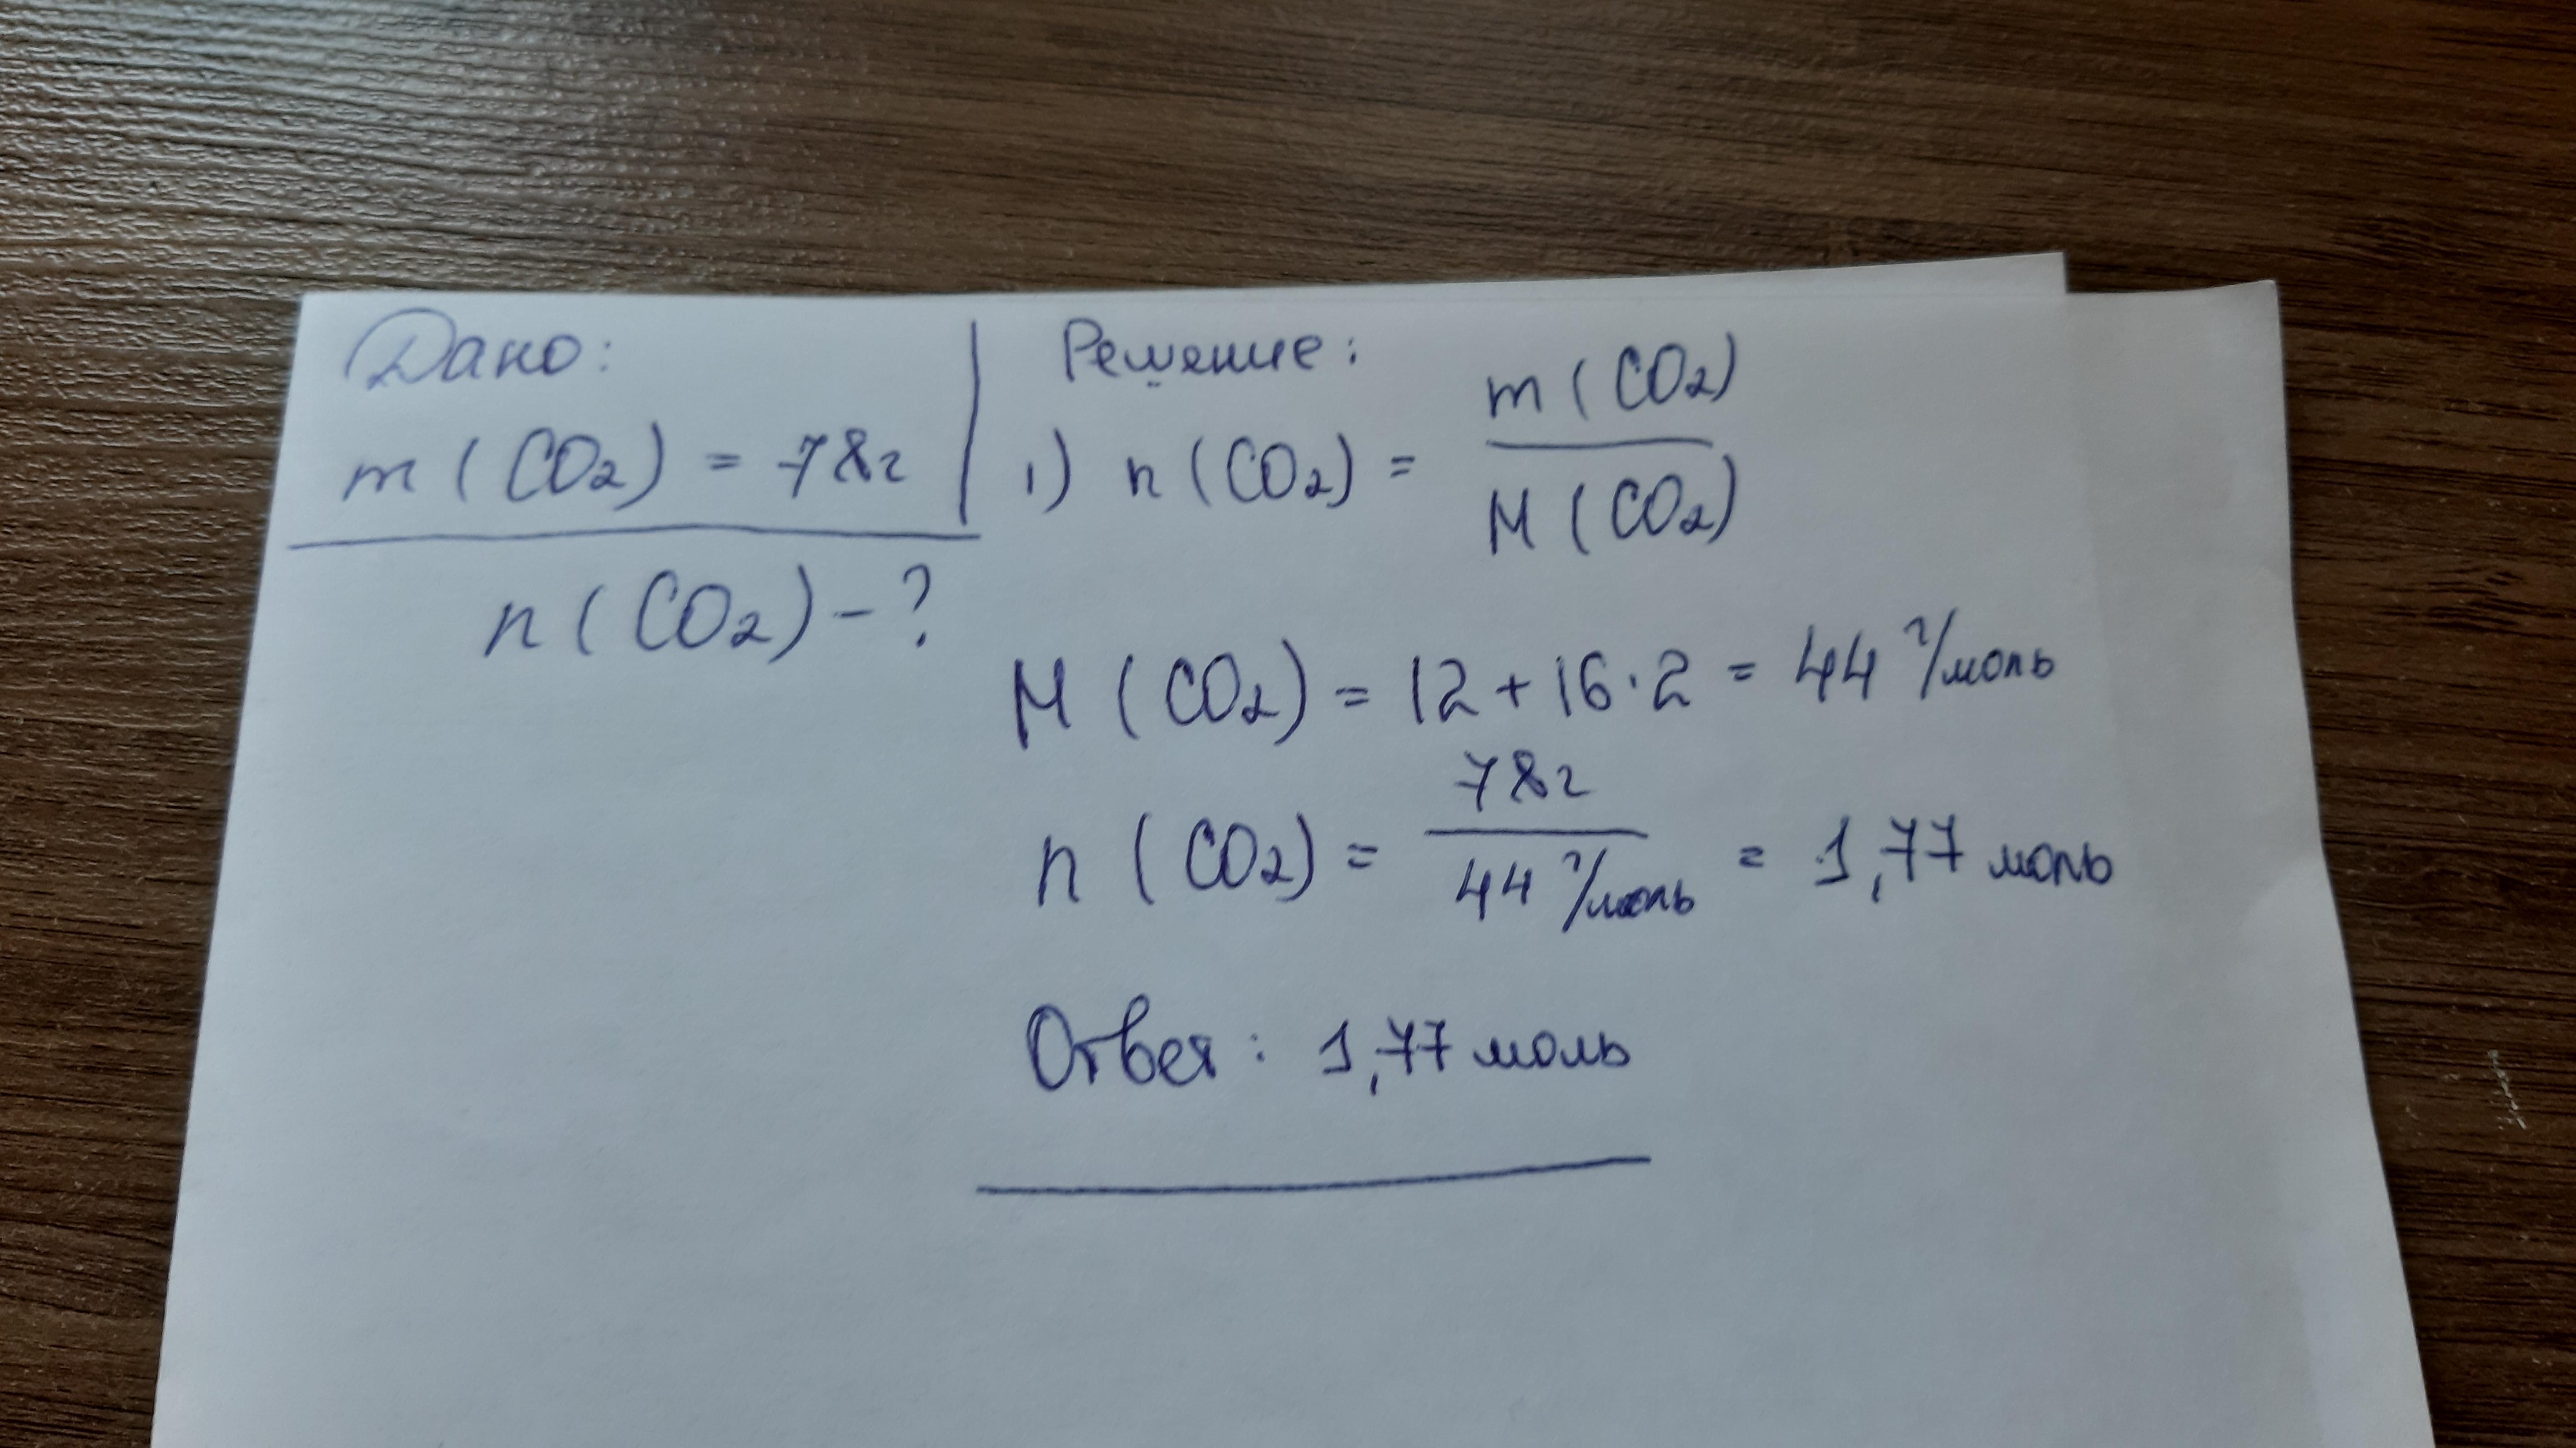 Дано:
m (CO2) = 78г
n (CO2) - ?
Решение:
1) n (CO2) = m (CO2) / M (CO2)
M (CO2) = 12 + 16 · 2 = 44 г/моль
n (CO2) = 78г / 44 г/моль = 1,77 моль
Ответ: 1,77 моль